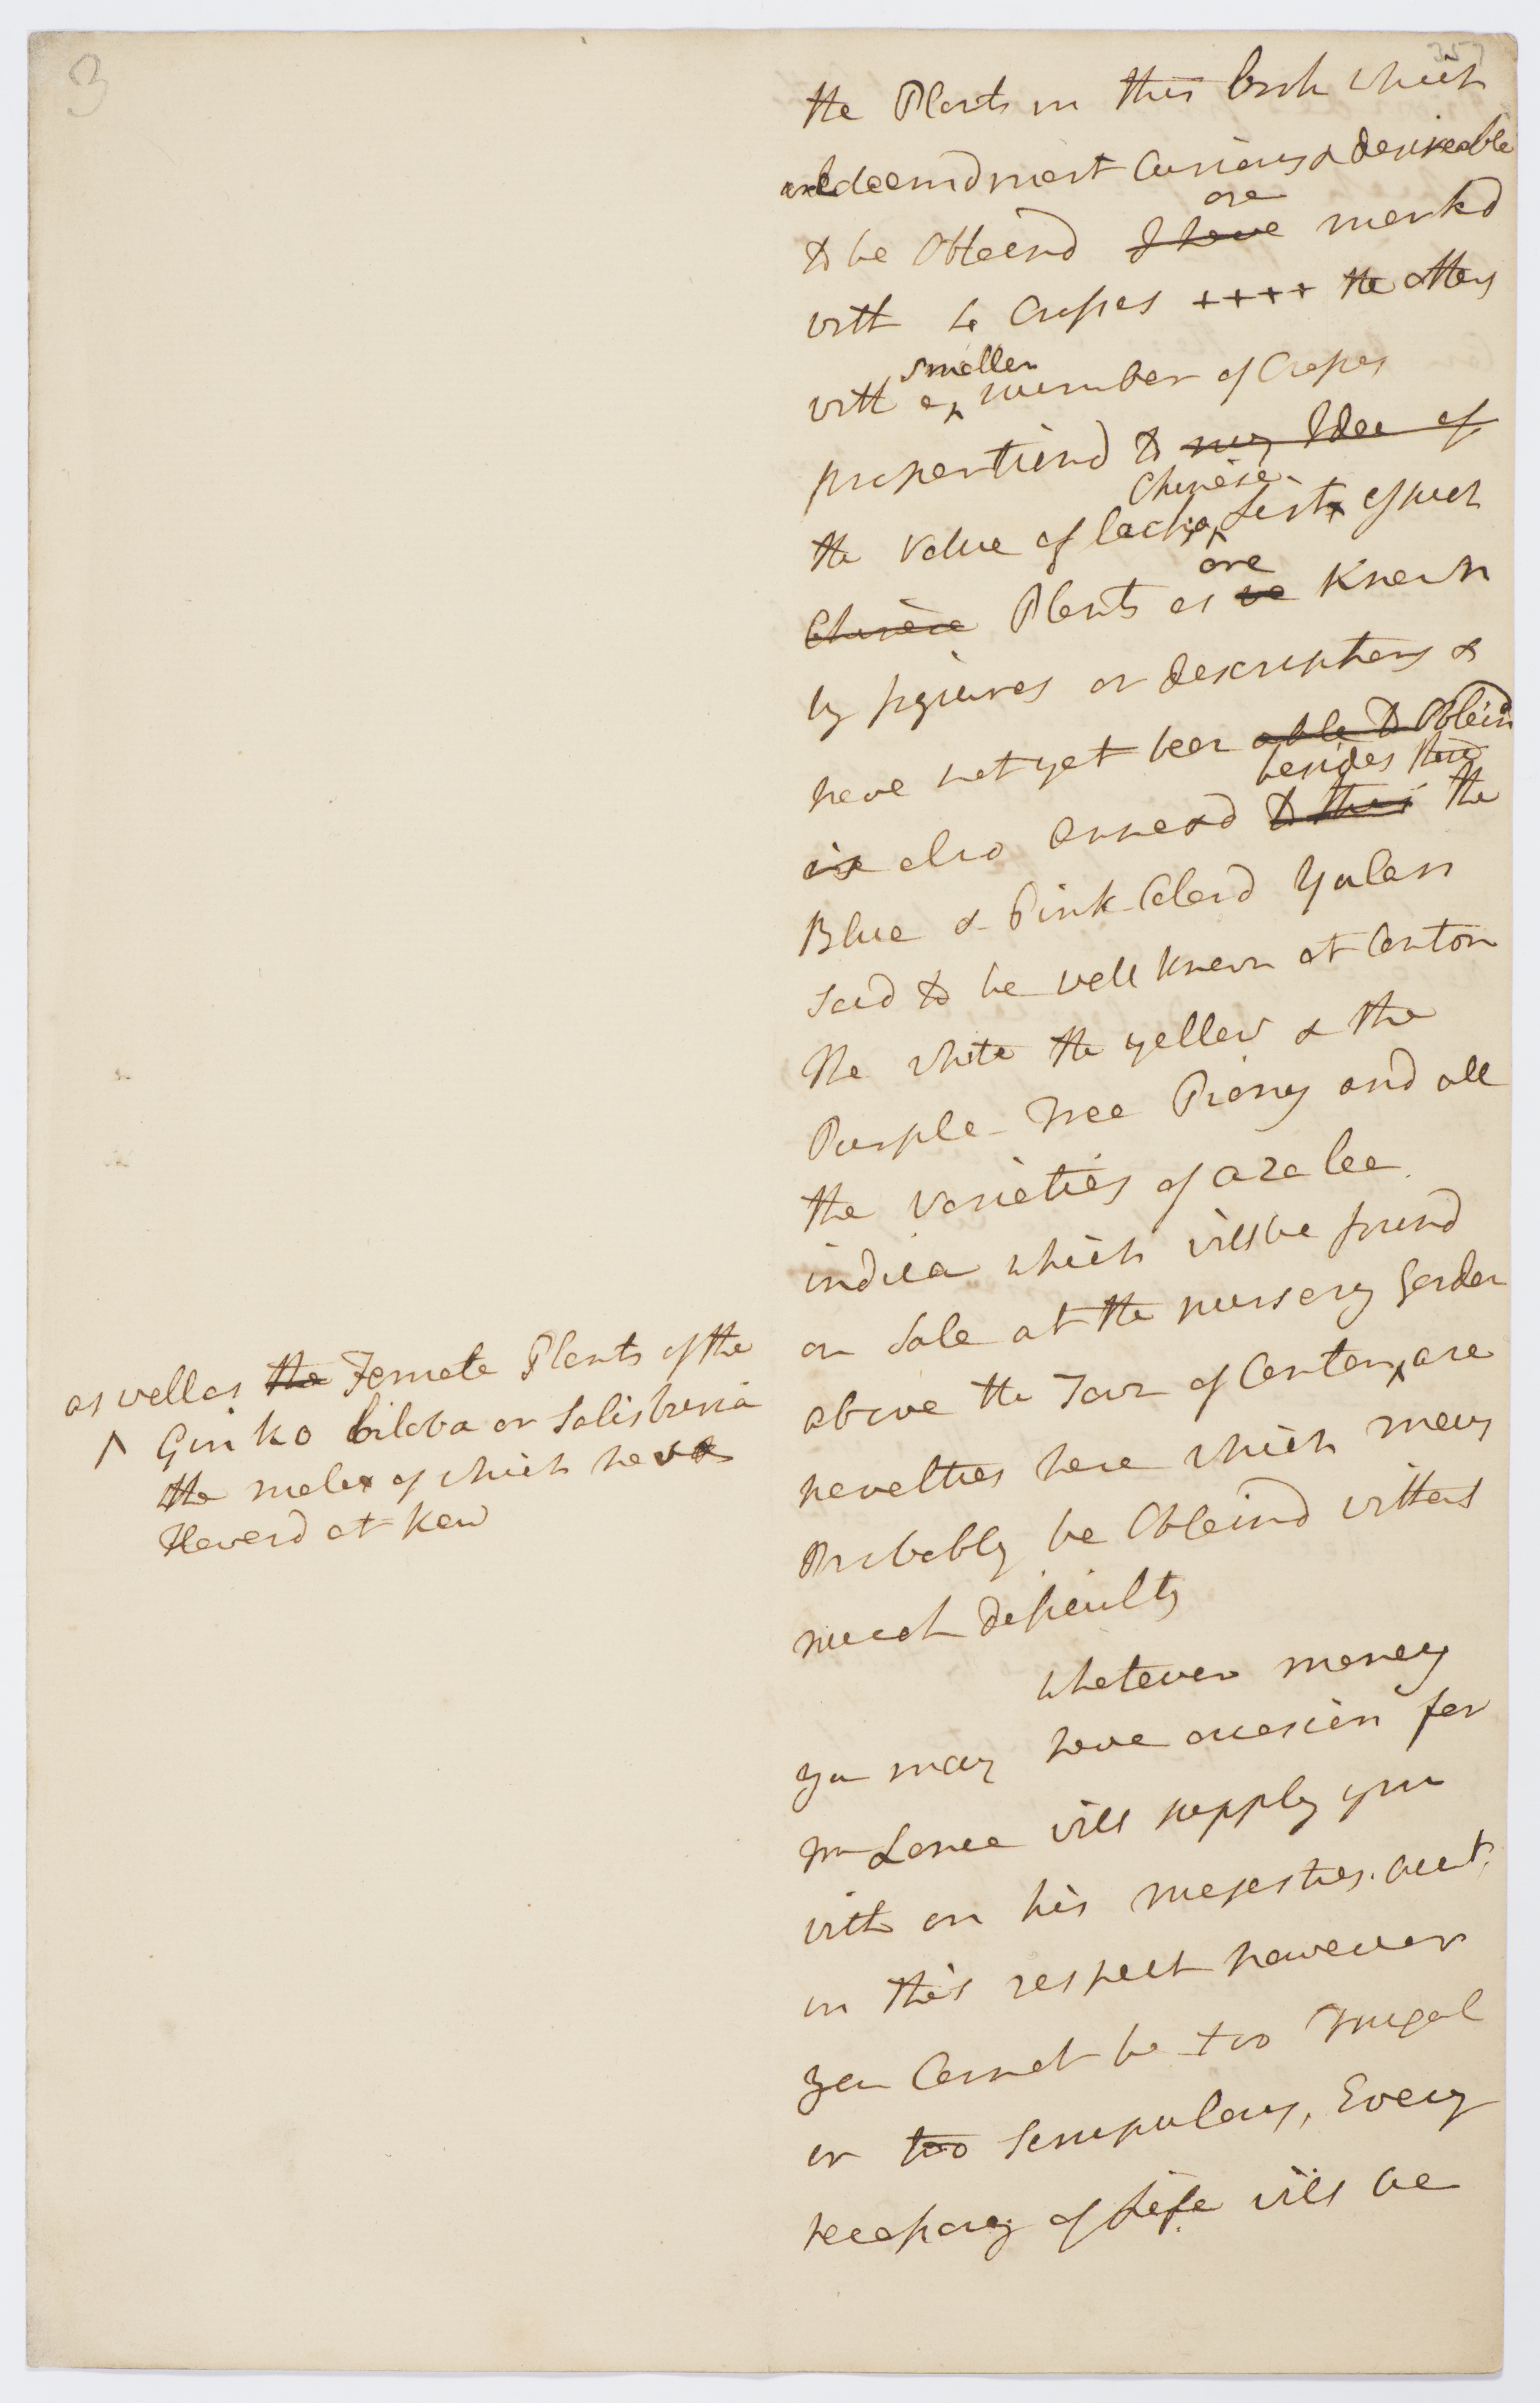 3
357
the Plants in this book which
are deemd most Curious & desireable
are
to be Obtaind I have markd
with 4 Crosses ++++ the others
smaller
with a ^ number of Crosses
proportiond to my Idea of
Chinese
the value of each, a ^ List of such
are
Chinese Plants as we Known
by figures or descriptions &
have not yet been able to Obtaind
besides these
is also annexd to this the
Blue & Pink Colord Yulan
said to be well known at Canton
The white the yellow & the
Purple Tree Piony and all
the varieties of azalea
indica which will be found
on sale at the nursery Garden
above the Town of Canton ^ are
novelties here which may
Probably be Obtaind without
much difficulty
whatever money
you may have occasion for
Mr Lance will supply you
with on his majesties. acct.
in this respect however
you Cannot be too Frugal
or too Scrupulous, Every
necessary of Life will be
as well as the Female Plants of the
^ Ginko biloba or Salisburia
the male of which have
Flowerd at Kew